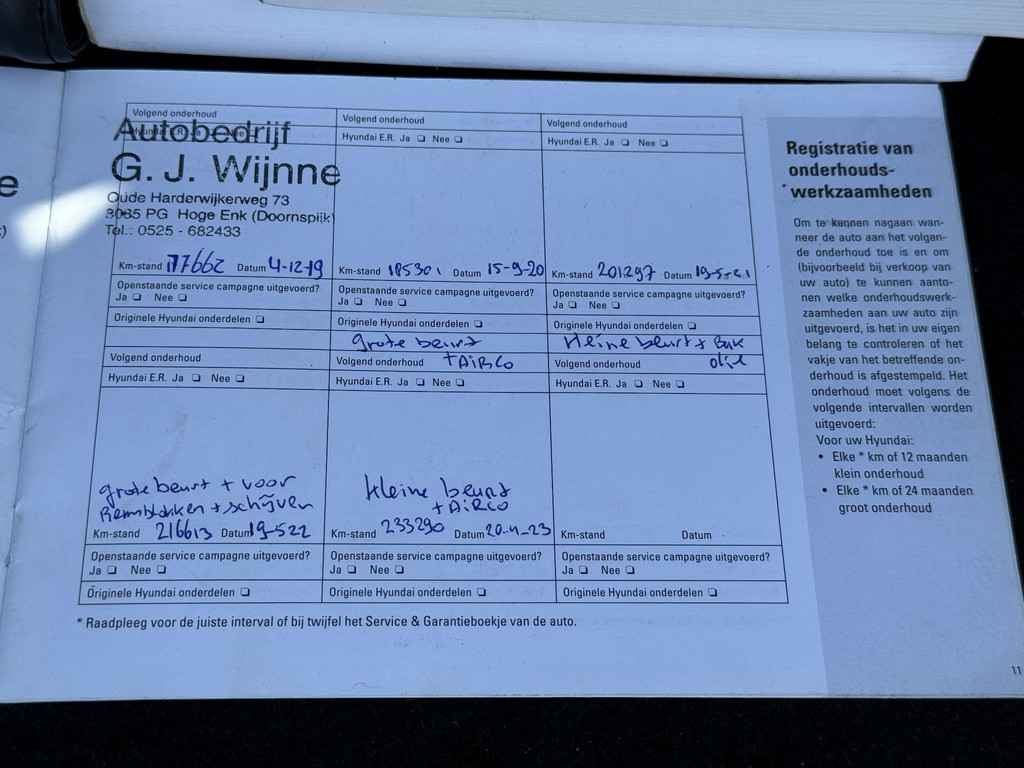 Volgend onderhoud
Hyundai E.R. Ja Nee
Autobedrijf
G. J. Wijnne
Oude Harderwijkerweg 73
8085 PG Hoge Enk (Doornspijk)
Tel.: 0525 - 682433
Km-stand 177662 Datum 4-12-19
Openstaande service campagne uitgevoerd?
Ja Nee
Originele Hyundai onderdelen
Volgend onderhoud
Hyundai E.R. Ja Nee
Km-stand 185301 Datum 15-9-20
Openstaande service campagne uitgevoerd?
Ja Nee
Originele Hyundai onderdelen
grote beurt
+ Airco
Volgend onderhoud
Hyundai E.R. Ja Nee
Km-stand 201297 Datum 19-5-21
Openstaande service campagne uitgevoerd?
Ja Nee
Originele Hyundai onderdelen
Kleine beurt + Bak
olie
Volgend onderhoud
Hyundai E.R. Ja Nee
grote beurt + voor
Remblokken + schijven
Km-stand 216613 Datum 19-522
Openstaande service campagne uitgevoerd?
Ja Nee
Originele Hyundai onderdelen
Volgend onderhoud
Hyundai E.R. Ja Nee
Kleine beurt
+ Airco
Km-stand 233290 Datum 20-4-23
Openstaande service campagne uitgevoerd?
Ja Nee
Originele Hyundai onderdelen
Volgend onderhoud
Hyundai E.R. Ja Nee
Km-stand Datum
Openstaande service campagne uitgevoerd?
Ja Nee
Originele Hyundai onderdelen
* Raadpleeg voor de juiste interval of bij twijfel het Service & Garantieboekje van de auto.
Registratie van
onderhouds-
werkzaamheden
Om te kunnen nagaan wan-
neer de auto aan het volgen-
de onderhoud toe is en om
(bijvoorbeeld bij verkoop van
uw auto) te kunnen aanto-
nen welke onderhoudswerk-
zaamheden aan uw auto zijn
uitgevoerd, is het in uw eigen
belang te controleren of het
vakje van het betreffende on-
derhoud is afgestempeld. Het
onderhoud moet volgens de
volgende intervallen worden
uitgevoerd:
Voor uw Hyundai:
• Elke * km of 12 maanden
klein onderhoud
• Elke * km of 24 maanden
groot onderhoud
11